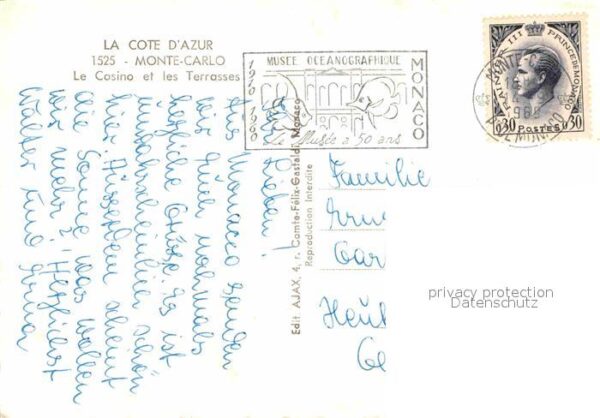 LA COTE D'AZUR
1525 - MONTE-CARLO
Le Casino et les Terrasses
1910 1960
MUSEE OCEANOGRAPHIQUE
MONACO
Le Musée a 50 ans
MONTE
RAINIER III PRINCE DE MONACO
0,30 POSTES 0,30
Edit AJAX, 4, r. Comte-Félix-Gastaldi, Monaco
Reproduction Interdite
Ihr Lieben!
Aus Monaco senden
wir Euch nochmals
herzliche Grüsse. Es ist
unwahrscheinlich schön
hier. Ausserdem scheint
die Sonne. Was wollen
wir mehr? Herzlichst
Walter und
Familie
privacy protection
Datenschutz